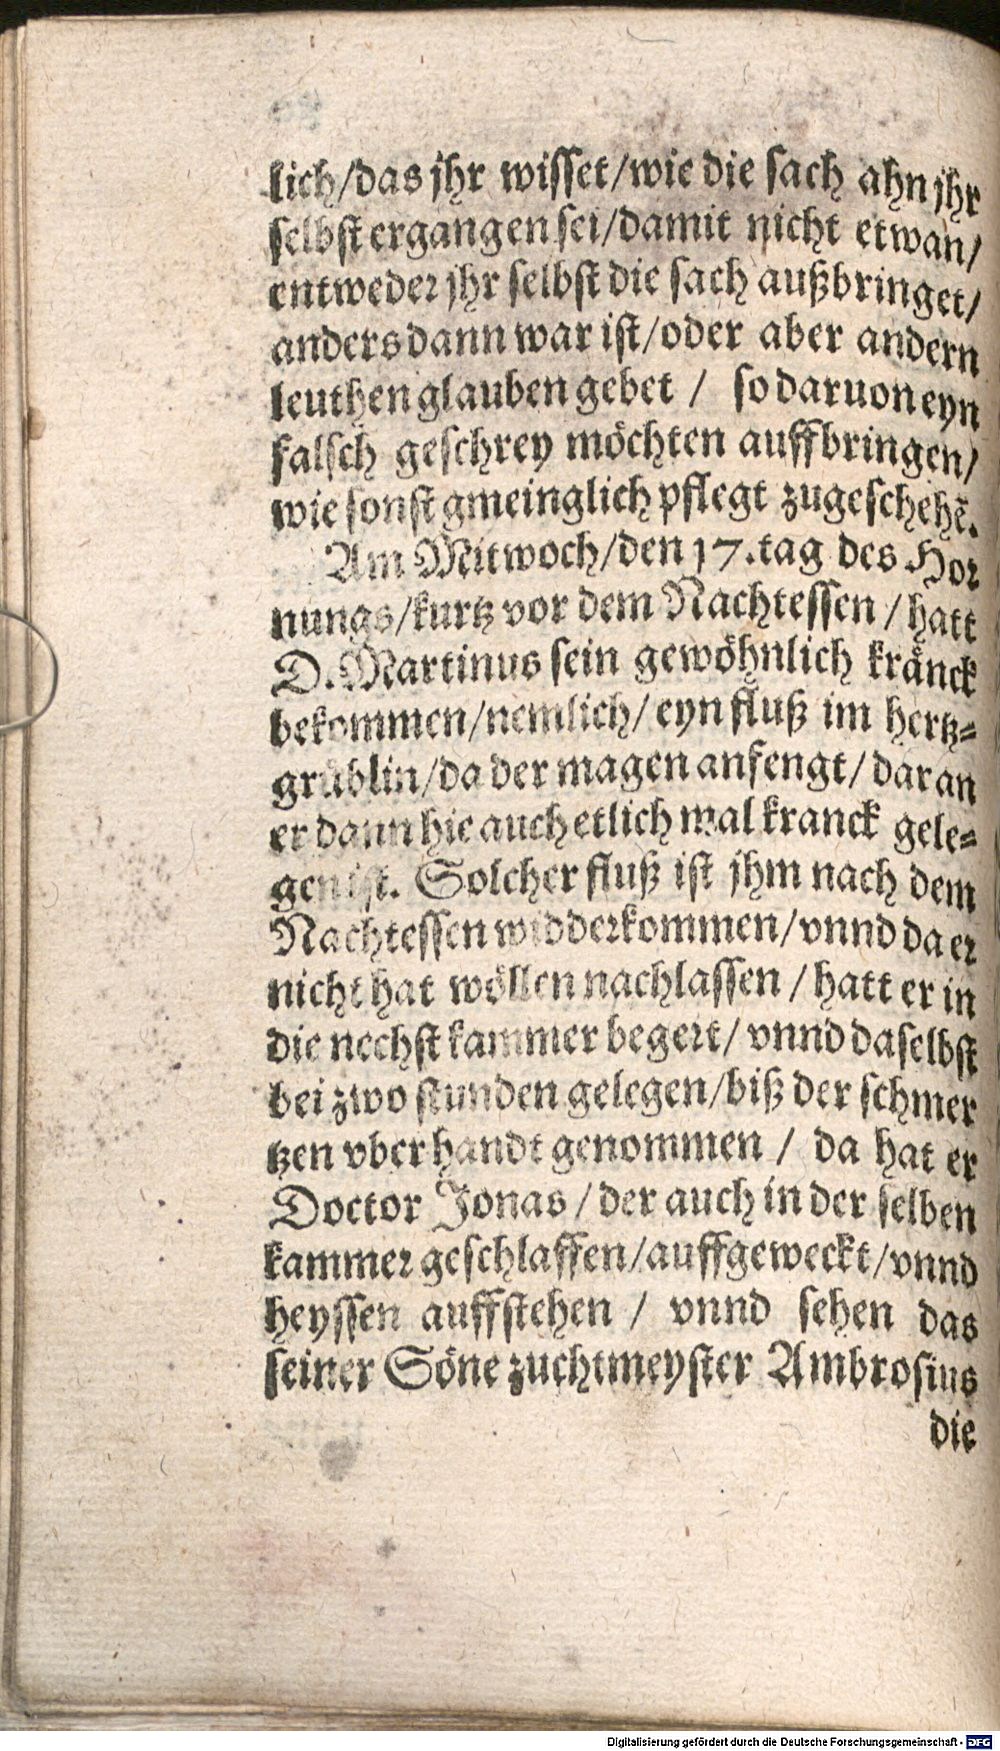 lich/das jhr wisset/wie die sach ahn jhr
selbst ergangen sei/damit nicht etwan/
entweder jhr selbst die sach außbringet/
anders dann war ist/oder aber andern
leuthen glauben gebet / so daruon eyn
falsch geschrey möchten auffbringen/
wie sonst gmeinglich pflegt zugeschehẽ.
Am Mitwoch/den 17.tag des Hor
nungs/kurtz vor dem Nachtessen / hatt
D.Martinus sein gewöhnlich kränck
bekommen/nemlich/ eyn fluß im hertz⸗
grüblin/da der magen anfengt/ daran
er dann hie auch etlich mal kranck gele⸗
gen ist. Solcher fluß ist jhm nach dem
Nachtessen widderkommen/vnnd da er
nicht hat wöllen nachlassen / hatt er in
die nechst kammer begert/ vnnd daselbst
bei zwo stunden gelegen/biß der schmer
tzen vber handt genommen / da hat er
Doctor Jonas / der auch in der selben
kammer geschlaffen/auffgeweckt/vnnd
heyssen auffstehen / vnnd sehen das
seiner Söne zuchtmeyster Ambrosius
die
Digitalisierung gefördert durch die Deutsche Forschungsgemeinschaft - DFG